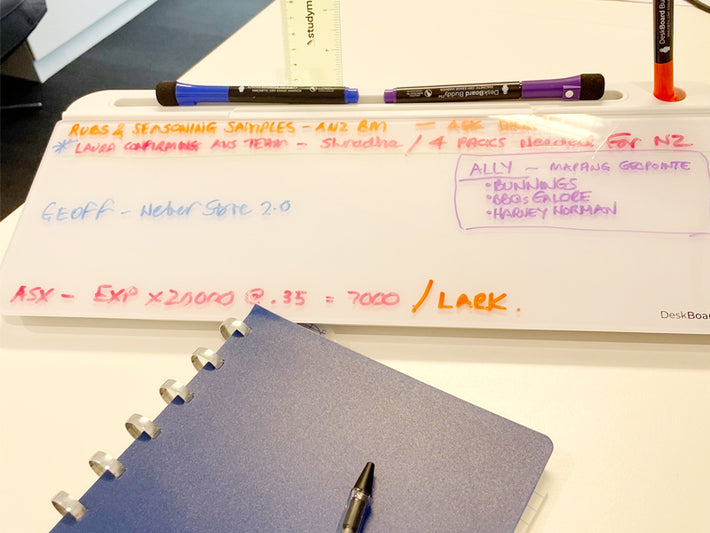 studym
DeskBoard Buddy™
DeskBoard Bu
RUBS & SEASONING SAMPLES - ANZ BM - ASK
* LAURA CONFIRMING AUS TEAM - Shradha / 4 PACKS Needed For NZ
ALLY - MAPANG GEOPOINTE
• BUNNINGS
• BBQs GALORE
• HARVEY NORMAN
GEOFF - Weber Store 2.0
ASX - EXP x 20000 @ .35 = 7000 / LACK.
DeskBoar